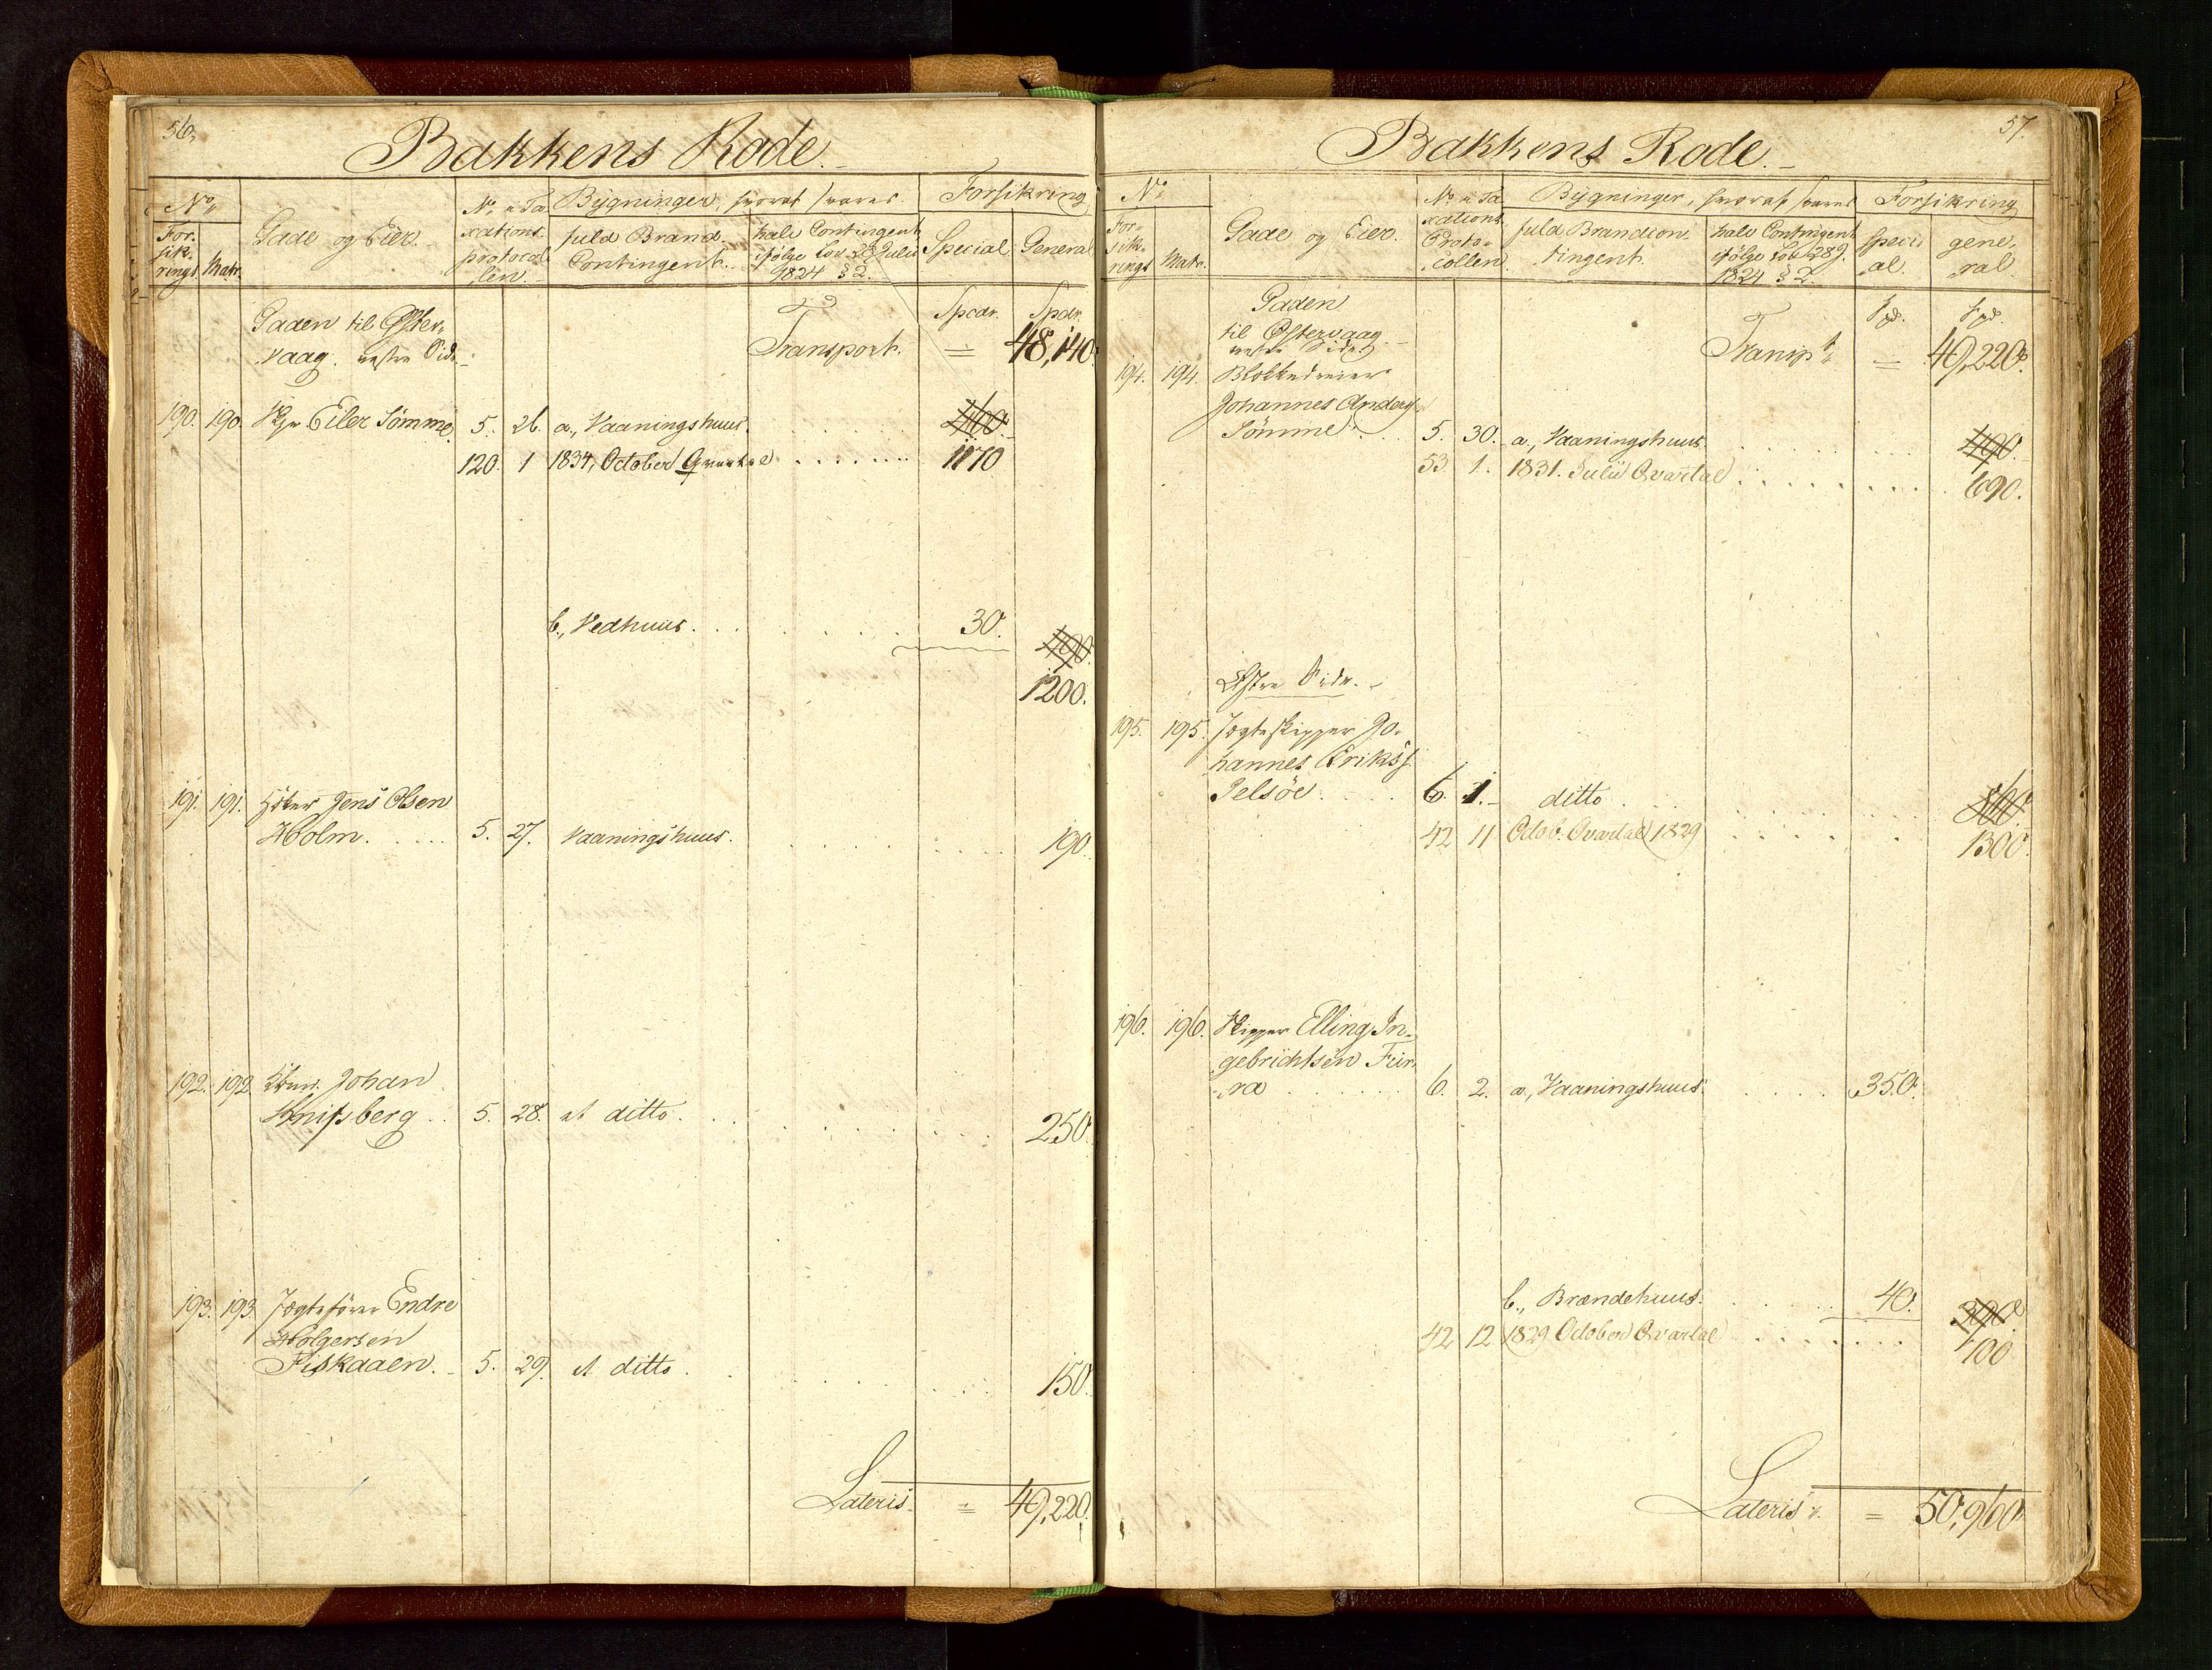 56.
Bakkens Rode.
No.
For-
sik-
rings
Matr.
Gade og Eier.
No. i Ta
xations-
protocol
len.
Bygninger, hvoraf svares
fuld Brand-
Contingent.
halv Contingent
ifølge Lov 28 Julii
1824 § 2.
Forsikring
Special.
General
Gaden til Øster-
vaag. vestre Side.
Transport.
Spdr.
=
Spdr.
48,140.
190. 190. Skpr Eiler Sömme. 5. 26. a., Vaaningshuus. 460.
120. 1 1834, October Qvartal 1170
b., Vedhuus. 30. 490.
1200.
191. 191. Höker Jens Olsen
Holm. 5. 27. Vaaningshuus. 190.
192. 192. Johan
Knipsberg 5. 28. et ditto. 250.
193. 193. Jægtefører Endre
Holgersen
Fiskaaen. 5. 29. et ditto. 150.
Lateris = 49,220.
57.
Bakkens Rode.
No.
For-
sik-
rings
Matr.
Gade og Eier.
No. i Ta
xations-
Proto-
collen
Bygninger, hvoraf svares
fuld Brandcon-
tingent.
halv Contingent
ifølge Lov 28 J.
1824 § 2.
Forsikring
Speci
al.
gene-
ral
Gaden
til Østervaag
vestre Side.
Spd. Spd.
Transpt = 49,220.
194. 194. Blokkedreier
Johannes Anders.
Sömme. 5. 30. a., Vaaningshuus 490.
53. 1. 1831. Julii Qvartal 690.
Østre Side.
195. 195. Jægteskipper Jo-
hannes Eriks.
Jelsöe. 6. 1. ditto
42 11 Octob. Qvartal 1829 1300.
196. 196. Skipper Elling In-
gebrichtsen Für-
ra 6. 2. a., Vaaningshuus. 350.
b., Brændehuus. 40. 390.
42 12 1829 October Qvartal 400
Lateris = 50,960